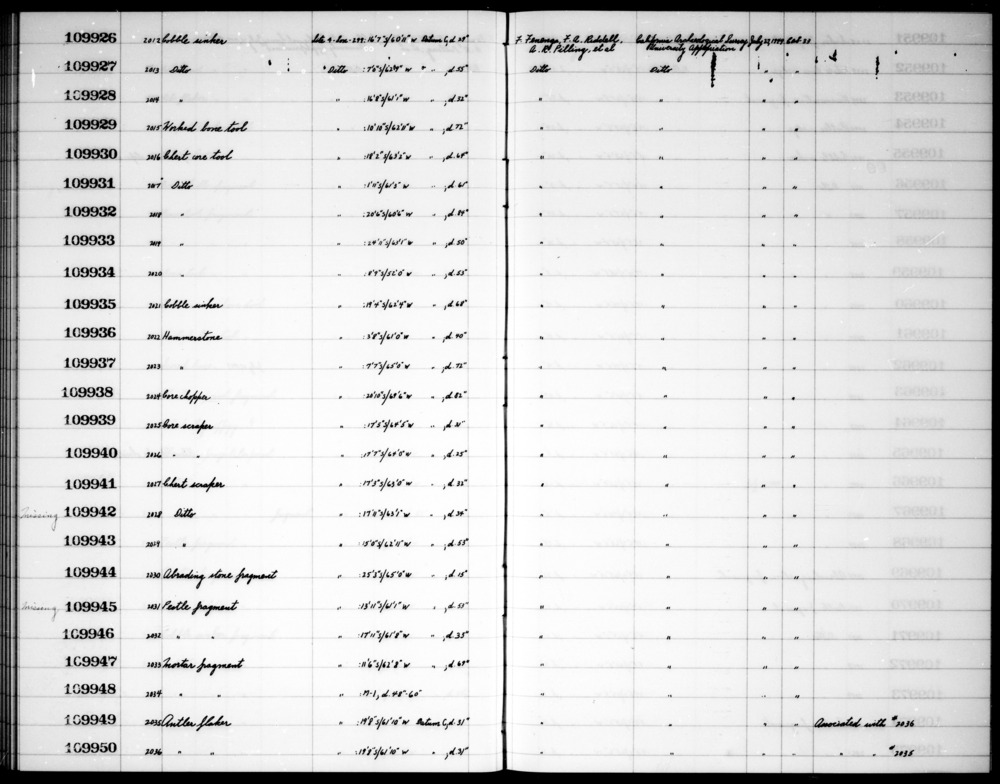 109926 2012 Cobble sinker Site 4-Lan-299: 16'7"S/60'11" W Datum C, d. 28" F. Fenenga, F. A. Riddell, California Archaeological Survey July 27, 1949 Cat. 28
A. R. Pilling, et al University Appropriation
109927 2013 Ditto " Ditto :7'6"S/62'9" W " " , d. 55" Ditto Ditto " "
109928 2014 " " :16'8"S/61'1" W " , d. 32" " " " "
109929 2015 Worked bone tool " :10'10"S/62'8" W " , d. 72" " " " "
109930 2016 Chert core tool " :18'2"S/63'2" W " , d. 69" " " " "
109931 2017 Ditto " :1'11"S/61'3" W " , d. 61" " " " "
109932 2018 " " :20'6"S/60'6" W " , d. 84" " " " "
109933 2019 " " :24'11"S/63'1" W " , d. 50" " " " "
109934 2020 " " :8'9"S/52'0" W " , d. 53" " " " "
109935 2021 Cobble sinker " :19'4"S/62'9" W " , d. 68" " " " "
109936 2022 Hammerstone " :3'8"S/61'0" W " , d. 40" " " " "
109937 2023 " " :7'7"S/65'0" W " , d. 72" " " " "
109938 2024 Core chopper " :20'10"S/69'6" W " , d. 82" " " " "
109939 2025 Core scraper " :17'5"S/64'5" W " , d. 21" " " " "
109940 2026 " " " :17'7"S/64'0" W " , d. 25" " " " "
109941 2027 Chert scraper " :17'3"S/63'0" W " , d. 32" " " " "
missing 109942 2028 Ditto " :17'0"S/63'1" W " , d. 34" " " " "
109943 2029 " " :15'0"S/62'11" W " , d. 53" " " " "
109944 2030 Abrading stone fragment " :25'5"S/65'0" W " , d. 15" " " " "
missing 109945 2031 Pestle fragment " :13'11"S/61'1" W " , d. 53" " " " "
109946 2032 " " " :17'11"S/61'8" W " , d. 35" " " " "
109947 2033 Mortar fragment " :11'6"S/62'8" W " , d. 69" " " " "
109948 2034 " " " , d. 48"-60" " " " "
109949 2035 Antler flaker " :19'8"S/61'10" W Datum C, d. 31" " " " " Associated with #2036
109950 2036 " " " :19'8"S/61'10" W " , d. 31" " " " " " " #2035